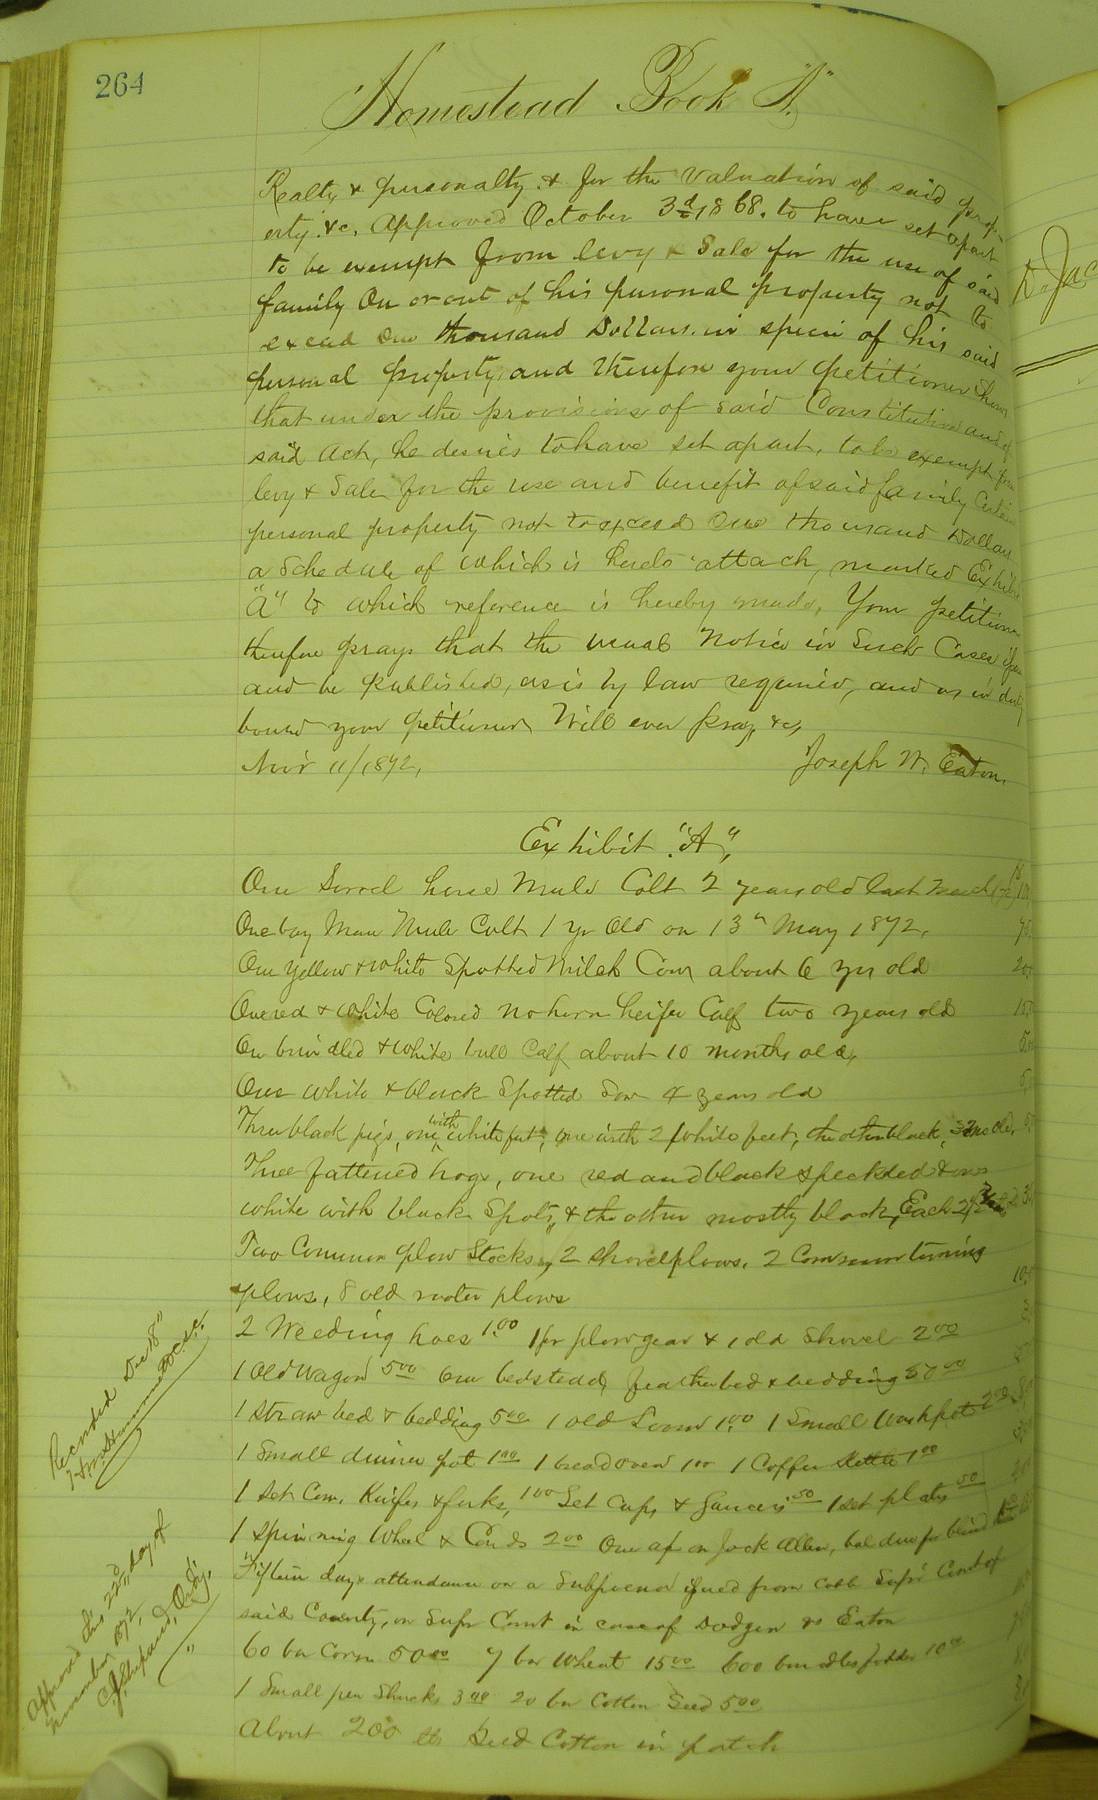 264
Homestead Book "A"
Realty & personalty, & for the valuation of said prop-
erty. &c. Approved October 3d, 1868. to have set apart
to be exempt from levy & Sale for the use of said
family On or out of his personal property not to
excead One thousand Dollars in specie of his said
personal property, and therefore your petitioner shows
that under the provisions of said Constitution and of
said Act, he desires to have set apart, to be exempt from
levy & Sale for the use and benefit of said family Certain
personal property not to exceed One thousand Dollars
a Schedule of which is hereto attach, marked Exhibit
"A" to which reference is hereby made, Your petitioner
therefore prays that the usual Notice in Such Cases
and be published, as is by law required, and as in duty
bound your petitioner Will ever pray &c,
Nov'r 11/1872, Joseph W. Eaton.
Exhibit "A",
One Sorrel horse Mule Colt 2 years old last March
One bay Mare Mule Colt 1 yr Old on 13th May 1872,
One Yellow & white Spotted Milch Cow about 6 yrs old
One red & white Colored no horn heifer Calf two years old
One brindled & white bull Calf about 10 months old,
One white & black Spotted Sow 4 years old
Three black pigs, one with white feet, one with 2 white feet, the other black,
Three fattened hogs, one red and black speckled & one
white with black Spots, & the other mostly black, Each
Two Common plow Stocks, 2 shovel plows, 2 Common turning
plows, 8 old rooter plows
2 Weeding hoes 1.00 1 pr plow gear & 1 old Shovel 2 00
1 Old Wagon 5 00 One bedstead, feather bed & bedding 50 00
1 straw bed & bedding 5 00 1 old Loom 1.00 1 Small Washpot 2 00
1 Small dinner pot 1 00 1 bread oven 1 00 1 Coffee Kettle 1 00
1 set Com. Knifes & forks, 1 00 Set Cups & Saucers 50 1 set plates 50
1 Spinning Wheel & Cards 2 00 One on Jack Allen, bal due for
Fifteen days attendance on a Subpoena issued from Cobb Supr Court of
said County, on Supr Court in case of Dodgen vs Eaton
60 bu Corn 50 00 7 bu Wheat 15 00 600 bundles fodder 10 00
1 Small pen Shucks 3 00 20 bu Cotton Seed 5 00
About 200 lbs Seed Cotton in patch
Recorded Dec 18"
Approved this 22d, day of
November 1872,